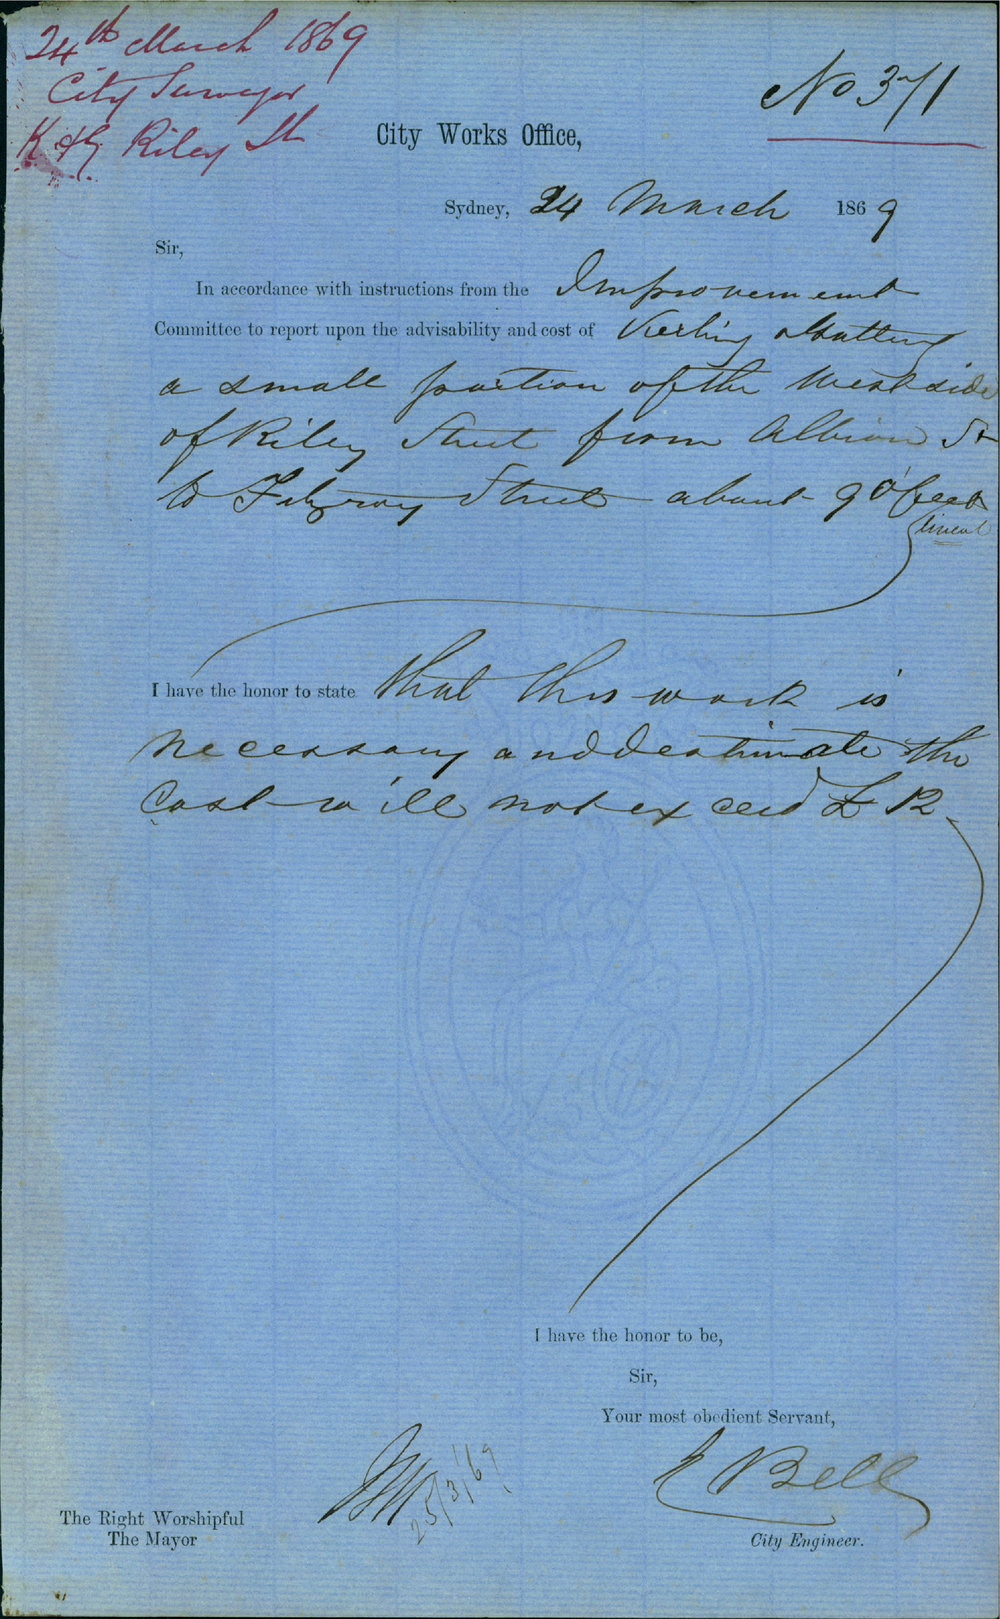 24th March 1869
City Surveyor
K & G Riley St
No 371
City Works Office,
Sydney, 24 March 1869
Sir,
In accordance with instructions from the Improvement
Committee to report upon the advisability and cost of Kerbing & Guttering
a small portion of the West side
of Riley Street from Albion St
to Fitzroy Street about 90 feet
lineal
I have the honor to state that this work is
necessary and estimate the
Cost will not exceed £12
I have the honor to be,
Sir,
Your most obedient Servant,
E Bell
City Engineer.
25/3/69
The Right Worshipful
The Mayor